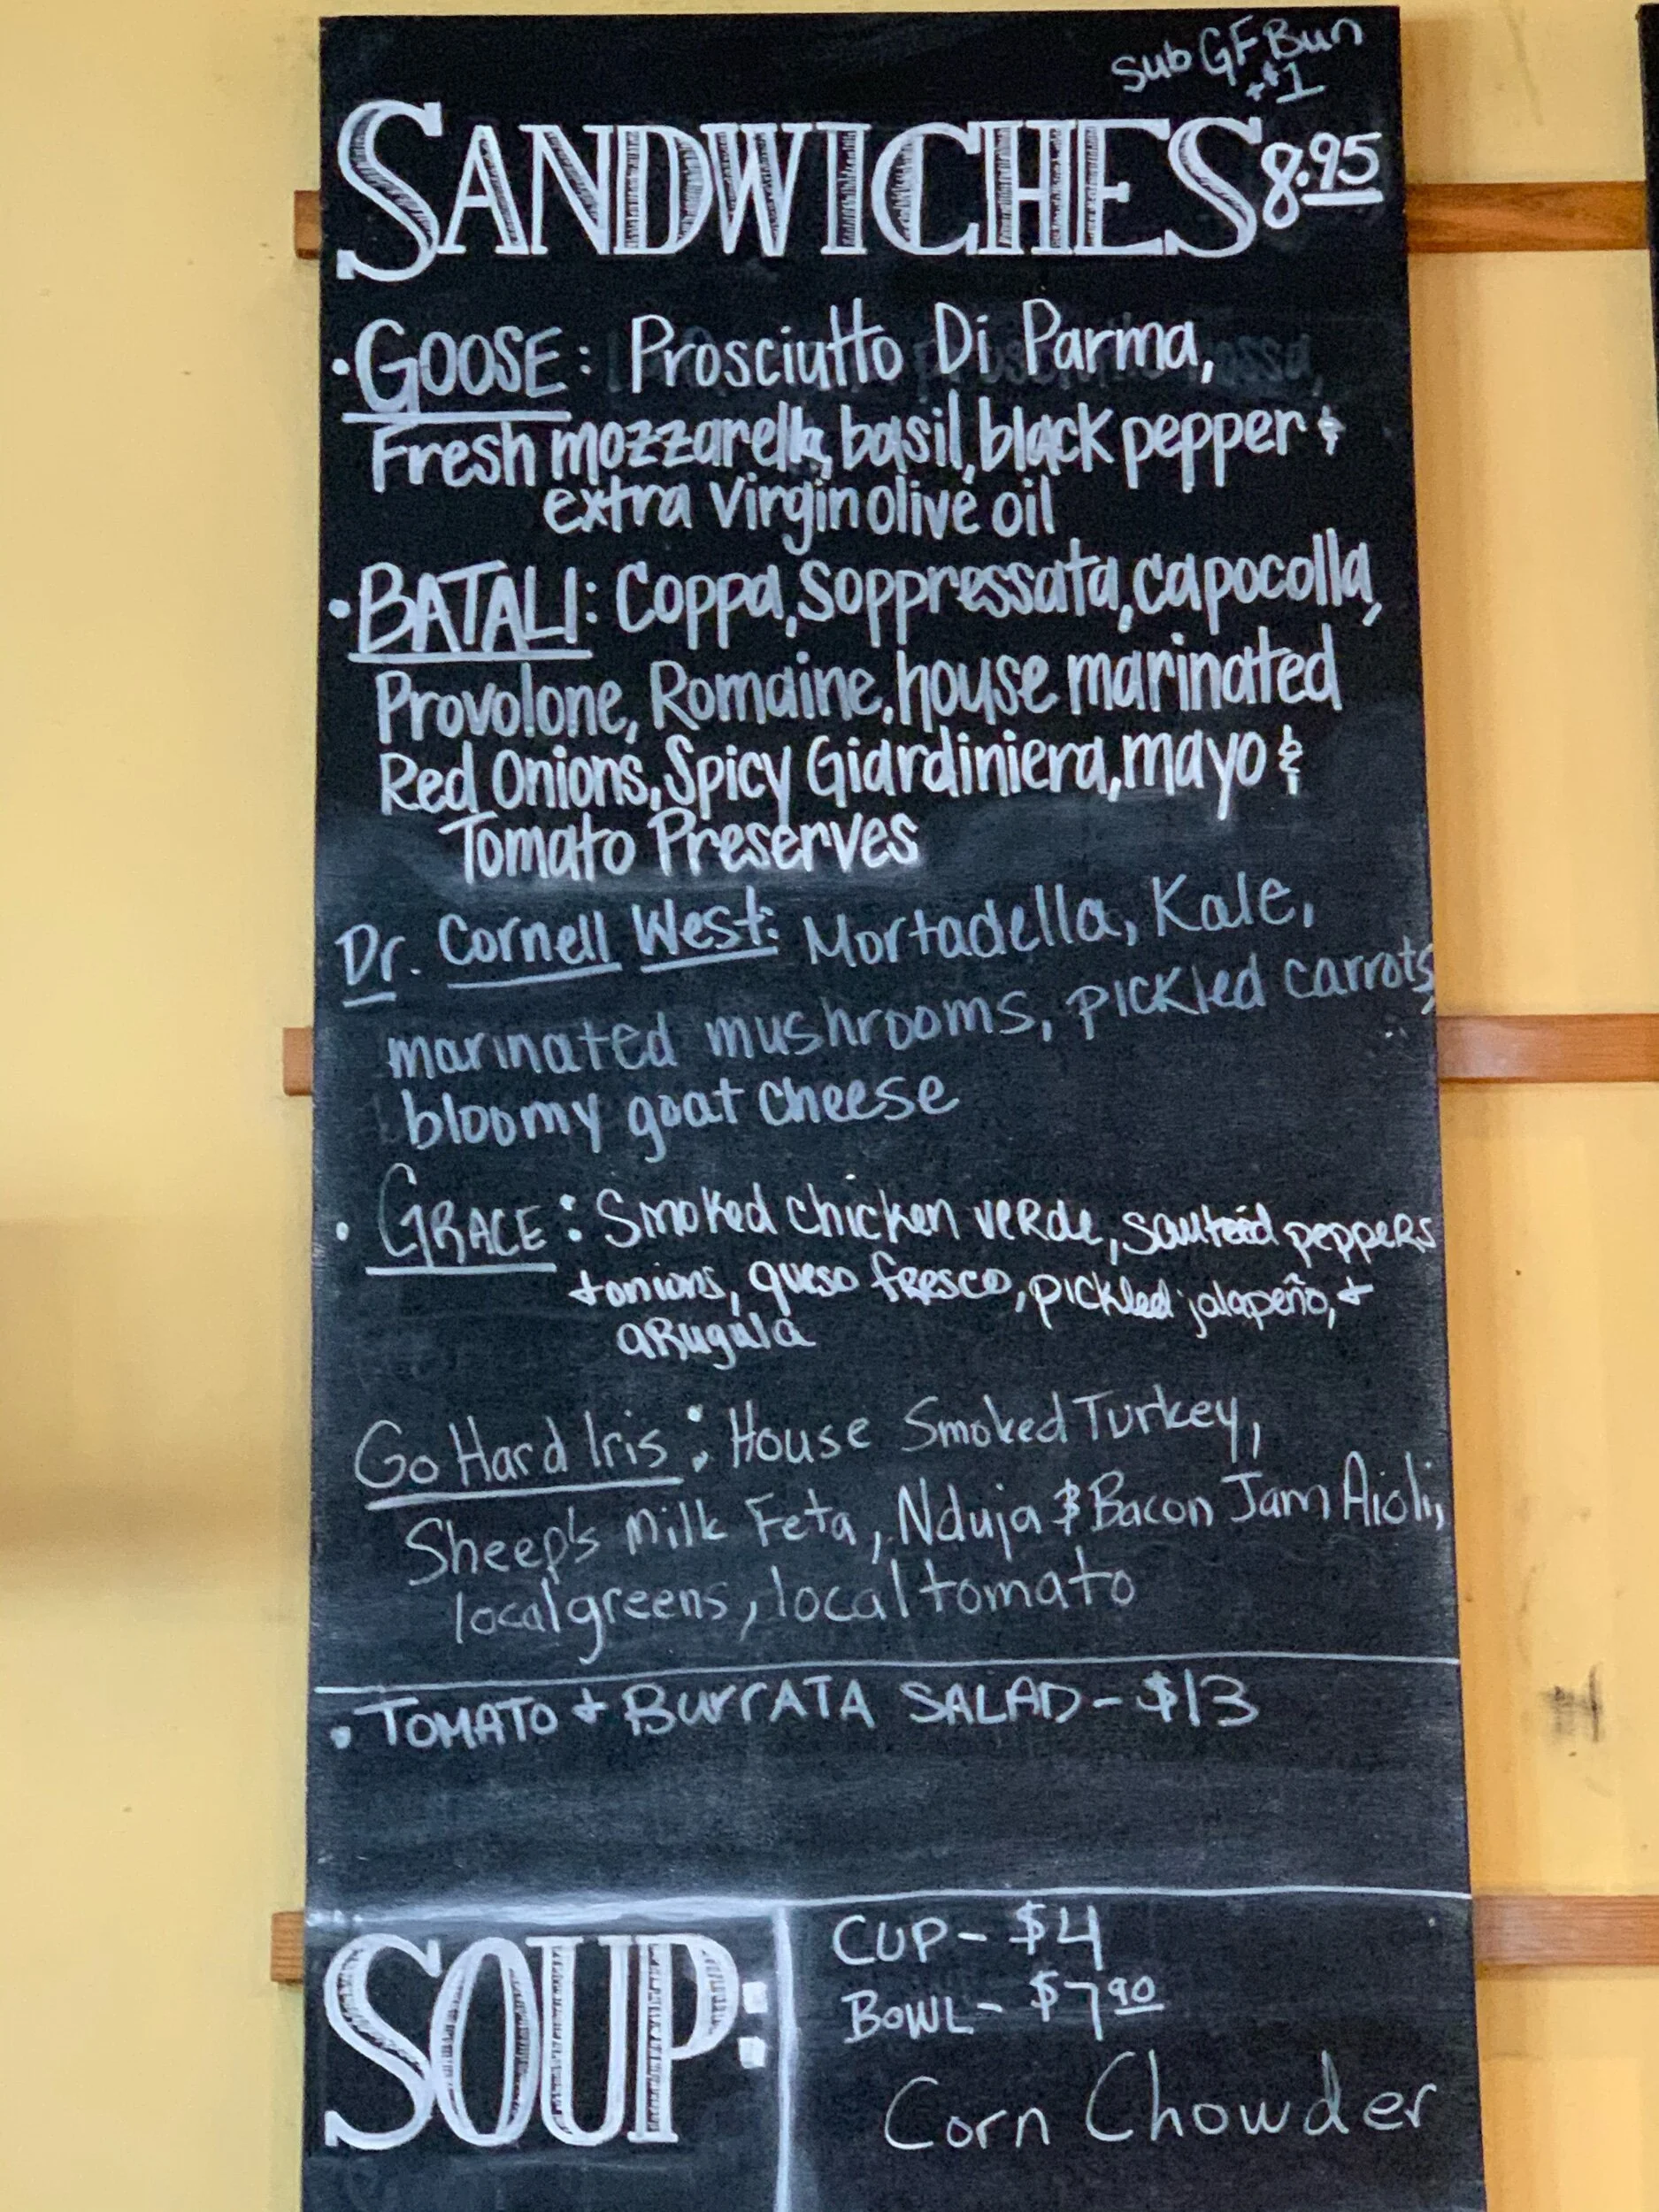 Sub GF Bun
+$1
SANDWICHES 8.95
• GOOSE: Prosciutto Di Parma,
Fresh mozzarella, basil, black pepper &
extra virgin olive oil
• BATALI: Coppa, Soppressata, capocolla,
Provolone, Romaine, house marinated
Red Onions, Spicy Giardiniera, mayo &
Tomato Preserves
Dr. Cornell West: Mortadella, Kale,
marinated mushrooms, pickled carrots,
bloomy goat cheese
• GRACE: Smoked chicken verde, sauteéd peppers
+ onions, queso fresco, pickled jalapeño, +
arugula
Go Hard Iris: House Smoked Turkey,
Sheep's Milk Feta, Nduja & Bacon Jam Aioli,
local greens, local tomato
• TOMATO + BURRATA SALAD - $13
SOUP:
CUP - $4
BOWL - $7.90
Corn Chowder